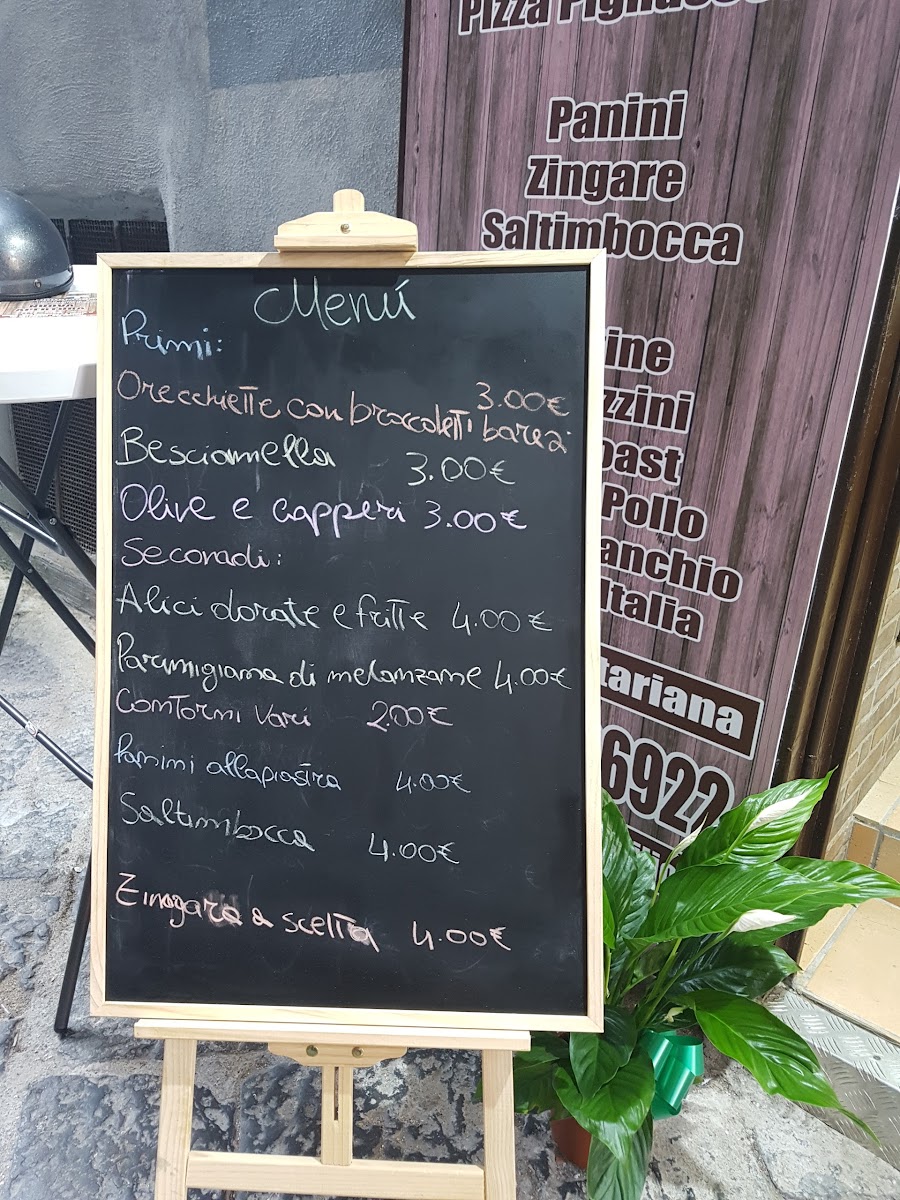 Pizza
Panini
Zingare
Saltimbocca
ine
zzini
oast
Pollo
anchio
Italia
tariana
6922
Menú
Primi:
Orecchiette con broccoletti baresi 3.00€
Besciamella 3.00€
Olive e capperi 3.00€
Secondi:
Alici dorate e fritte 4.00€
Parmigiana di melanzane 4.00€
Contorni vari 2.00€
Panini alla piastra 4.00€
Saltimbocca 4.00€
Zingara a scelta 4.00€